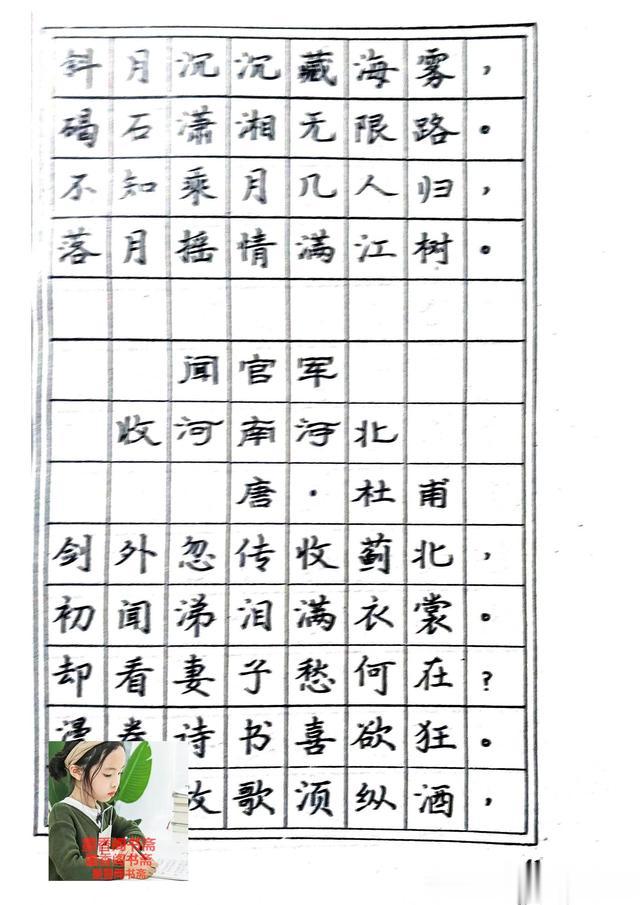 斜月沉沉藏海雾，
碣石潇湘无限路。
不知乘月几人归，
落月摇情满江树。
闻官军
收河南河北
唐·杜甫
剑外忽传收蓟北，
初闻涕泪满衣裳。
却看妻子愁何在？
漫卷诗书喜欲狂。
放歌须纵酒，
墨香阁书斋
墨香阁书斋
墨香阁书斋